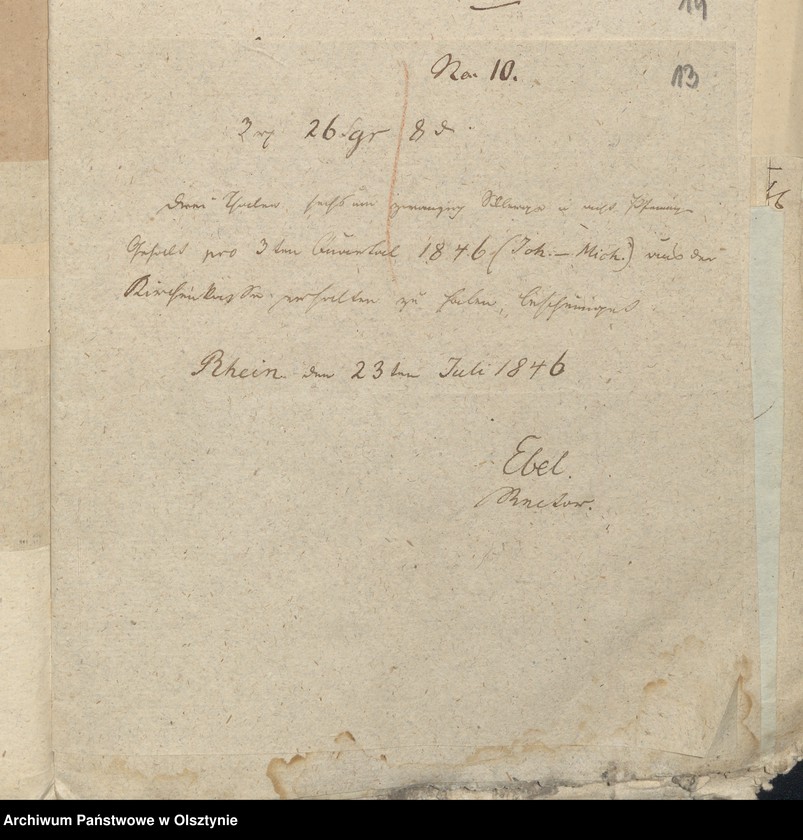 14
No. 10.
13
3 rℓ 26 Sgr 8 d.
Drei Thaler sechs und zwanzig Silbergr u acht Pfennig
Gehalt pro 3ten Quartal 1846 (Joh. – Mich.) aus der
Kirchenkasse erhalten zu haben, bescheiniget
Rhein den 23ten Juli 1846
Ebel.
Rector.
Archiwum Państwowe w Olsztynie